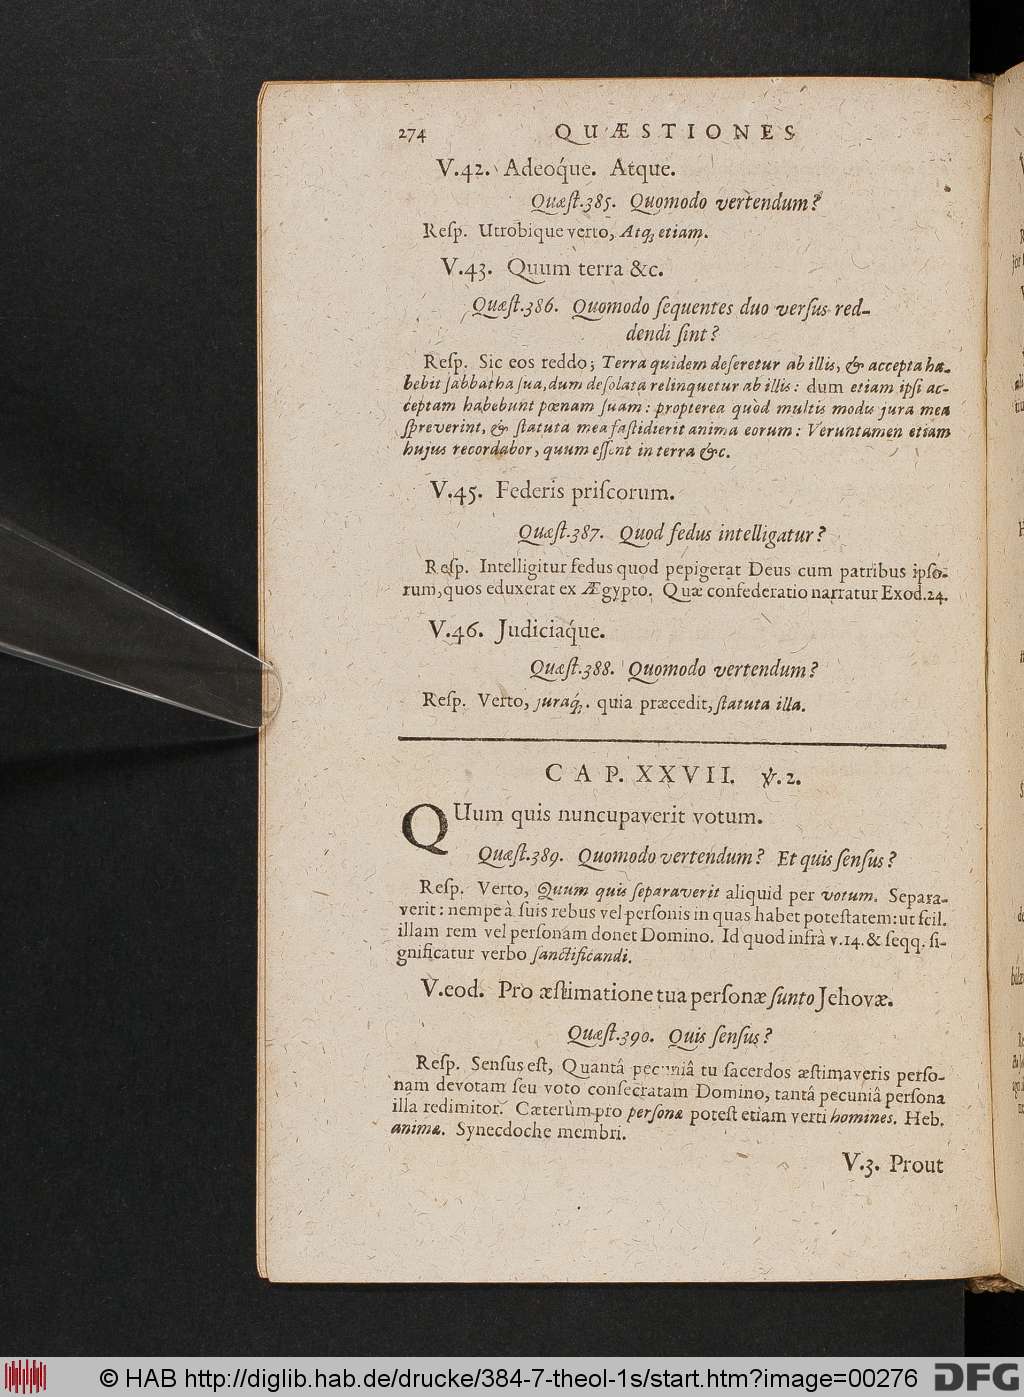 274 QUÆSTIONES
V.42. Adeoq́ue. Atque.
Quæſt.385. Quomodo vertendum?
Reſp. Utrobique verto, Atq; etiam.
V.43. Quum terra &c.
Quæſt.386. Quomodo ſequentes duo verſus red-
dendi ſint?
Reſp. Sic eos reddo; Terra quidem deſeretur ab illis, & accepta ha-
bebit ſabbatha ſua, dum deſolata relinquetur ab illis: dum etiam ipſi ac-
ceptam habebunt pœnam ſuam: propterea quòd multis modis jura mea
ſpreverint, & ſtatuta mea faſtidierit anima eorum: Veruntamen etiam
hujus recordabor, quum eſſent in terra &c.
V.45. Federis priſcorum.
Quæſt.387. Quod fedus intelligatur?
Reſp. Intelligitur fedus quod pepigerat Deus cum patribus ipſo-
rum, quos eduxerat ex Ægypto. Quæ confederatio narratur Exod.24.
V.46. Judiciaq́ue.
Quæſt.388. Quomodo vertendum?
Reſp. Verto, juraq́;. quia præcedit, ſtatuta illa.
CAP. XXVII. ℣.2.
QUum quis nuncupaverit votum.
Quæſt.389. Quomodo vertendum? Et quis ſenſus?
Reſp. Verto, Quum quis ſeparaverit aliquid per votum. Separa-
verit: nempe à ſuis rebus vel perſonis in quas habet poteſtatem: ut ſcil.
illam rem vel perſonam donet Domino. Id quod infrà v.14. & ſeqq. ſi-
gnificatur verbo ſanctificandi.
V.eod. Pro æſtimatione tua perſonæ ſunto Jehovæ.
Quæſt.390. Quis ſenſus?
Reſp. Senſus eſt, Quantâ pecuniâ tu ſacerdos æſtimaveris perſo-
nam devotam ſeu voto conſecratam Domino, tantâ pecuniâ perſona
illa redimitor. Cæterùm pro perſonæ poteſt etiam verti homines. Heb.
animæ. Synecdoche membri.
V.3. Prout
© HAB http://diglib.hab.de/drucke/384-7-theol-1s/start.htm?image=00276
DFG